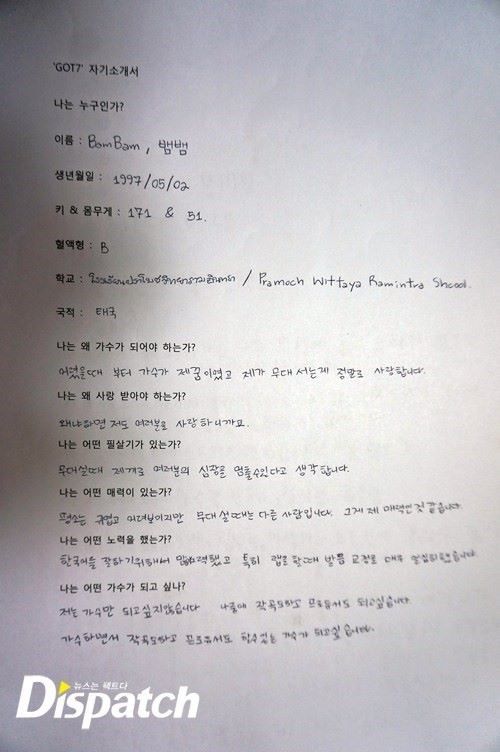 'GOT7' 자기소개서
나는 누구인가?
이름 : BamBam, 뱀뱀
생년월일 : 1997/05/02
키 & 몸무게 : 171 & 51.
혈액형 : B
학교 : / Pramoch Wittaya Ramintra Shcool.
국적 : 태국
나는 왜 가수가 되어야 하는가?
어렸을때 부터 가수가 제꿈이였고 제가 무대 서는게 정말로 사랑합니다.
나는 왜 사랑 받아야 하는가?
왜냐하면 저도 여러분을 사랑 하니까요.
나는 어떤 필살기가 있는가?
무대설때 제 여러분의 심장을 멈출수있다고 생각 합니다.
나는 어떤 매력이 있는가?
평소는 귀엽고 어려보이지만 무대 설때는 다른 사람입니다. 그게 제 매력인것 같습니다.
나는 어떤 노력을 했는가?
한국어를 잘하기위해서 했고 특히 랩을 할때 발음 교정을 매우 열심히 했습니다.
나는 어떤 가수가 되고 싶나?
저는 가수만 되고싶지않습니다 나중에 작곡도하고 프로듀서도 되고싶습니다.
가수하면서 작곡도하고 프로듀서도 할수있는 가수가 되고싶습니다.
뉴스는 팩트다
Dispatch